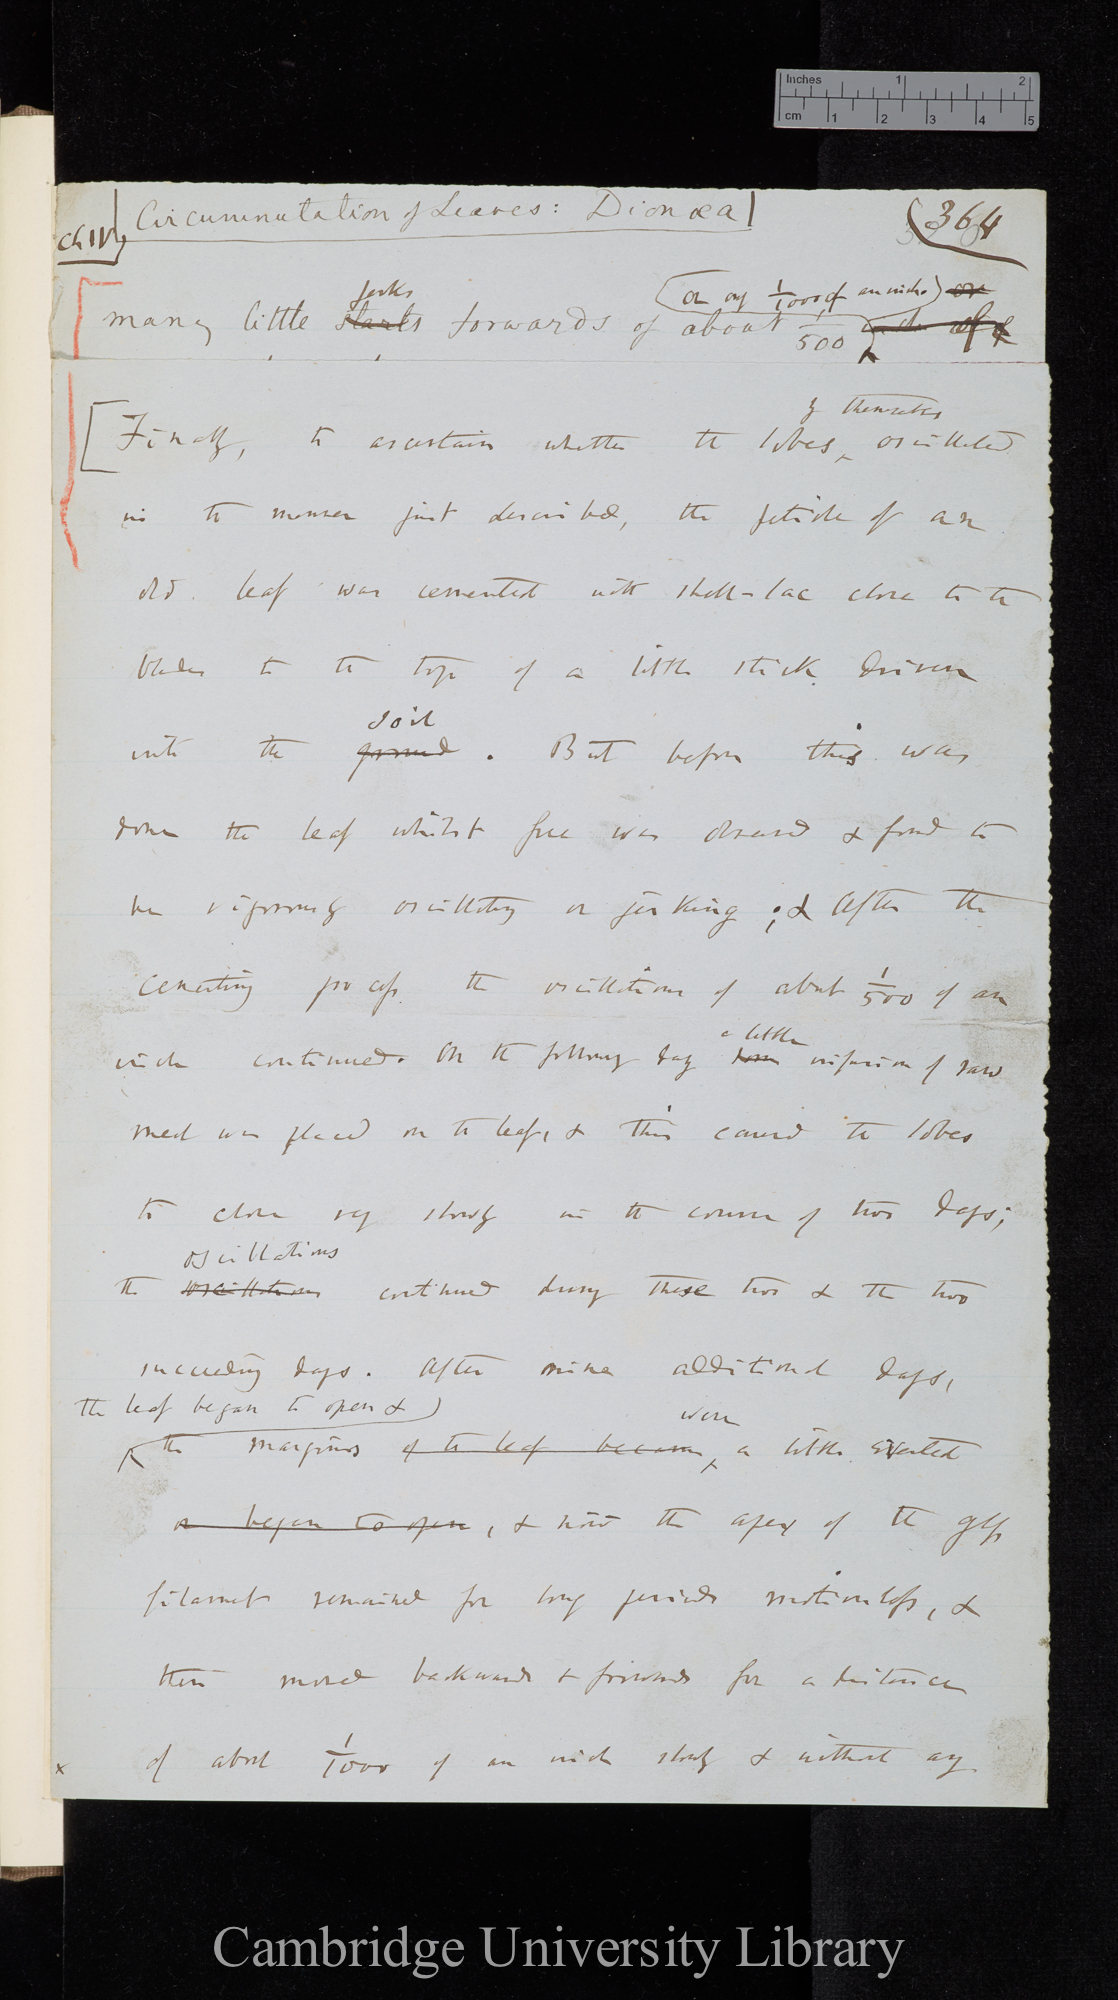 Inches 1 2
cm 1 2 3 4 5
Ch IV
Circumnutation of Leaves: Dionæa
364
jerks
(or only 1/1000 of an inch) or
many little starts forwards of about 1/500
by themselves
Finally, to ascertain whether the lobes oscillated
in the manner just described, the petiole of an
old leaf was cemented with shell-lac close to the
blades to the top of a little stick driven
soil
into the ground. But before this was
done the leaf whilst free was observed & found to
be vigorously oscillating or jerking; & After the
cementing process the oscillations of about 1/500 of an
a little
inch continued. On the following day some infusion of raw
meat was placed on the leaf, & this caused the lobes
to close very slowly in the course of two days;
oscillations
the oscillations continued during these two & the two
succeeding days. After nine additional days,
the leaf began to open &
were
the margins of the leaf became a little everted
or began to open, & now the apex of the glass
filament remained for long periods motionless, &
then moved backwards & forwards for a distance
x of about 1/1000 of an inch slowly & without any
Cambridge University Library